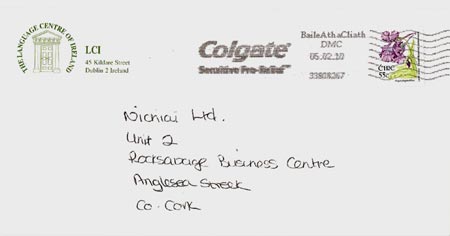 THE LANGUAGE CENTRE OF IRELAND
LCI
45 Kildare Street
Dublin 2 Ireland
Colgate
Sensitive Pro-Relief™
BaileAthaCliath
DMC
05.02.10
33808267
ÉIRE
55c
Nichiai Ltd.
Unit 2
Rocksavage Business Centre
Anglesea Street
Co. Cork